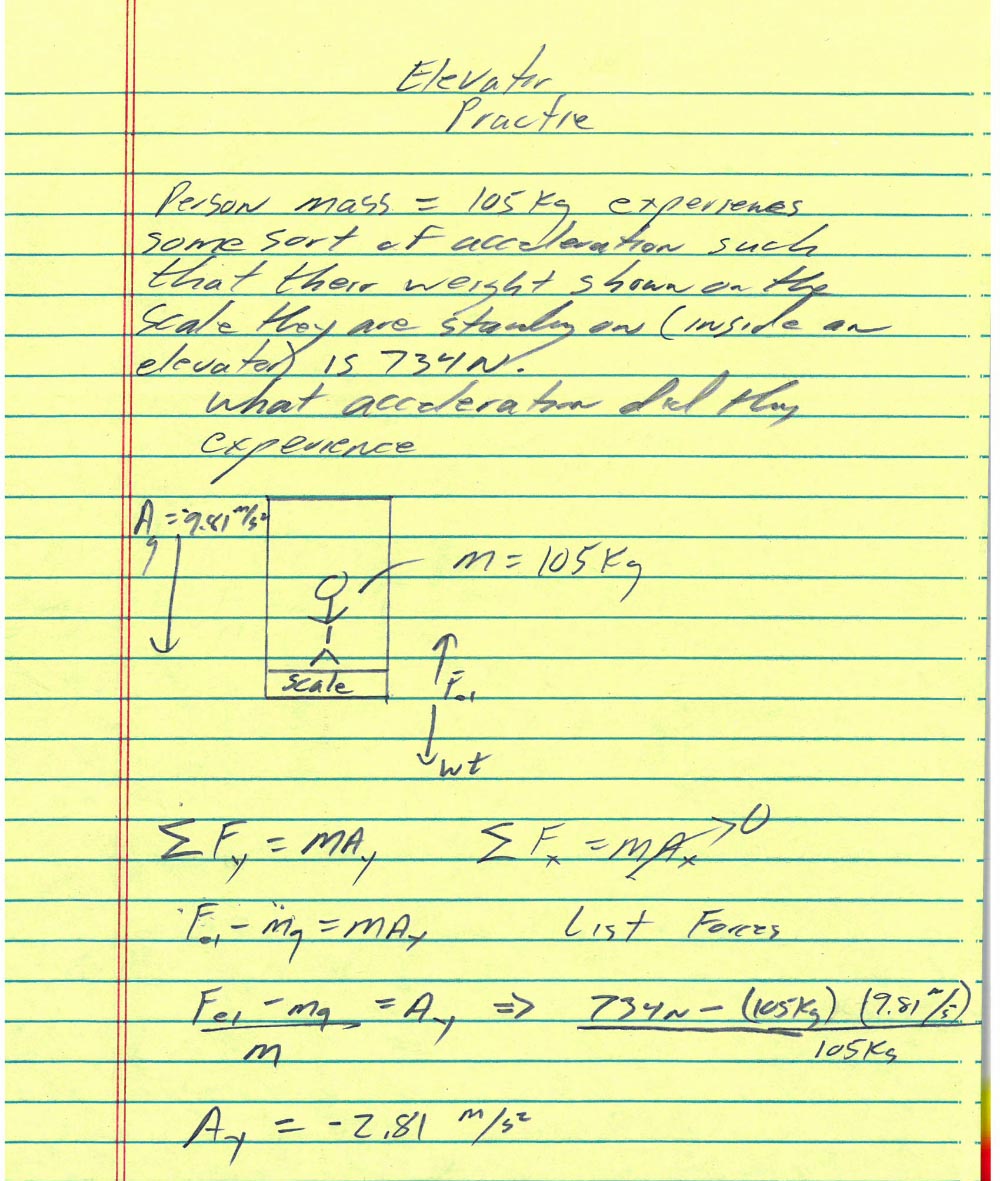 Elevator
Practice
Person mass = 105 Kg experiences
some sort of acceleration such
that their weight shown on the
scale they are standing on (inside an
elevator) is 734N.
what acceleration did they
experience
A_g = -9.81 m/s²
m = 105 Kg
scale
F_el
wt
ΣF_y = MA_y ΣF_x = mA_x → 0
F_el - mg = MA_y List Forces
F_el - mg / m = A_y => 734N - (105Kg) (9.81 m/s) / 105Kg
A_y = -2.81 m/s²